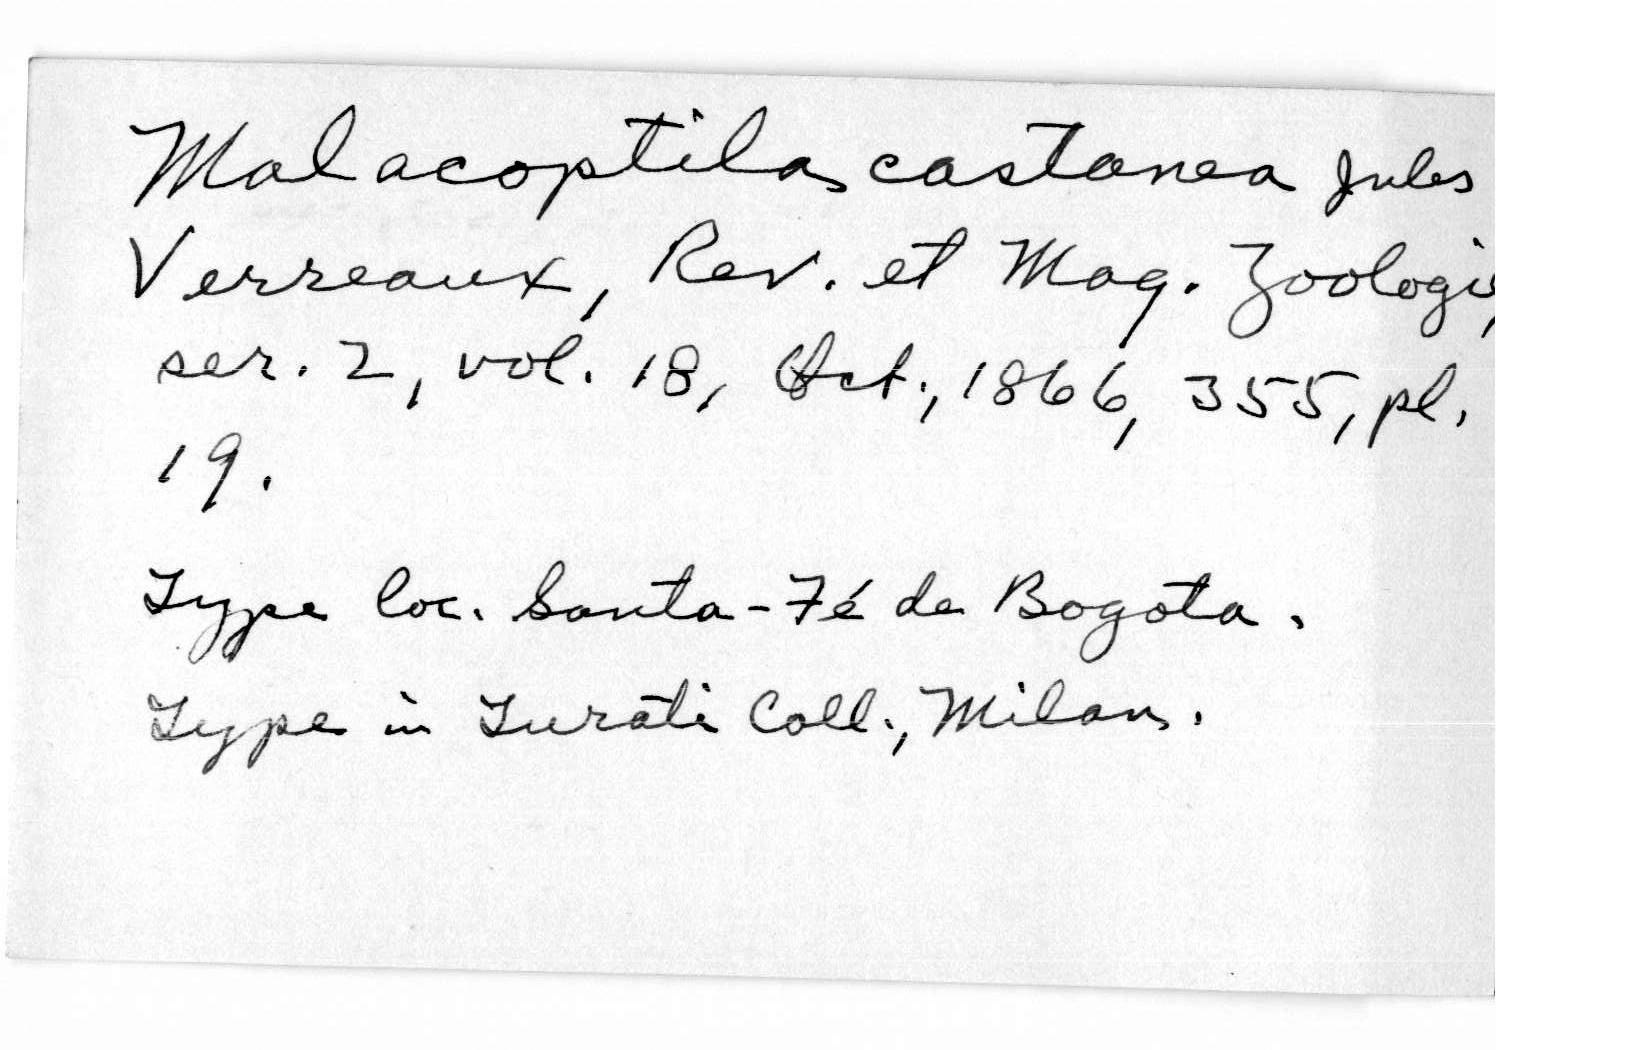 Malacoptila castanea Jules
Verreaux, Rev. et Mag. Zoologie,
ser. 2, vol. 18, Oct., 1866, 355, pl.
19.
Type loc. Santa-Fé de Bogota.
Type in Turati Coll., Milan.